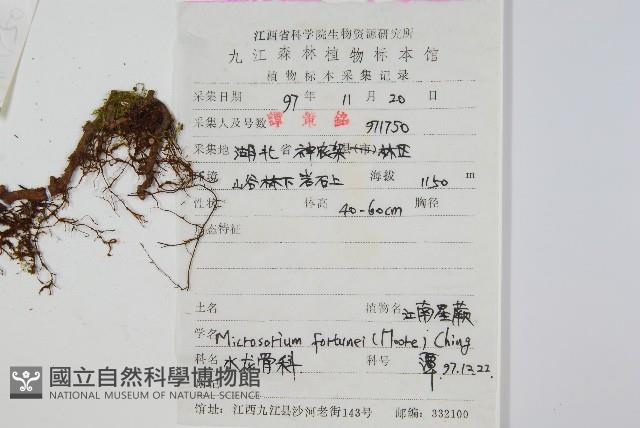 江西省科学院生物资源研究所
九江森林植物标本馆
植物标本采集记录
采集日期 97 年 11 月 20 日
采集人及号数 譚策銘 971750
采集地 湖北 省 神农架 县(市) 林区
环境 山谷林下岩石上 海拔 1150 m
性状 体高 40-60cm 胸径
态特征
土名 植物名 江南星蕨
学名 Microsorium fortunei (Moore) Ching
科名 水龙骨科 科号 譚 97.12.22
國立自然科學博物館
NATIONAL MUSEUM OF NATURAL SCIENCE
馆址: 江西九江县沙河老街143号 邮编: 332100